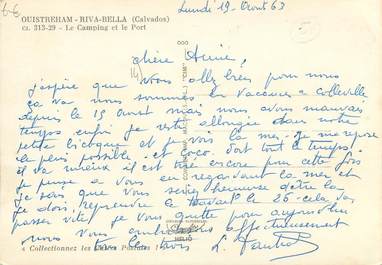 66
OUISTREHAM - RIVA-BELLA (Calvados)
CI. 313-29 - Le Camping et le Port
Lundi 19 Août 63
Chère Amie,
J'espère que vous allez bien pour nous
ça va nous sommes en vacances a Colleville
depuis le 15 Aout mais nous avons mauvais
temps enfin je reste allongée dans notre
petite bicoque et je vois la mer. Je me repose
le plus possible et Coco dort tout le temps.
il va mieux il est tiré encore pour cette fois
Je pense a vous en regardant la mer et
Je sais que vous seriez heureuse d'être là
Je dois reprendre le travail le 26. cela va
passer vite, Je vous quitte pour aujourd'hui
nous vous embrassons affectueusement
tous les trois
Collectionnez les Cartes Postales
HELIO